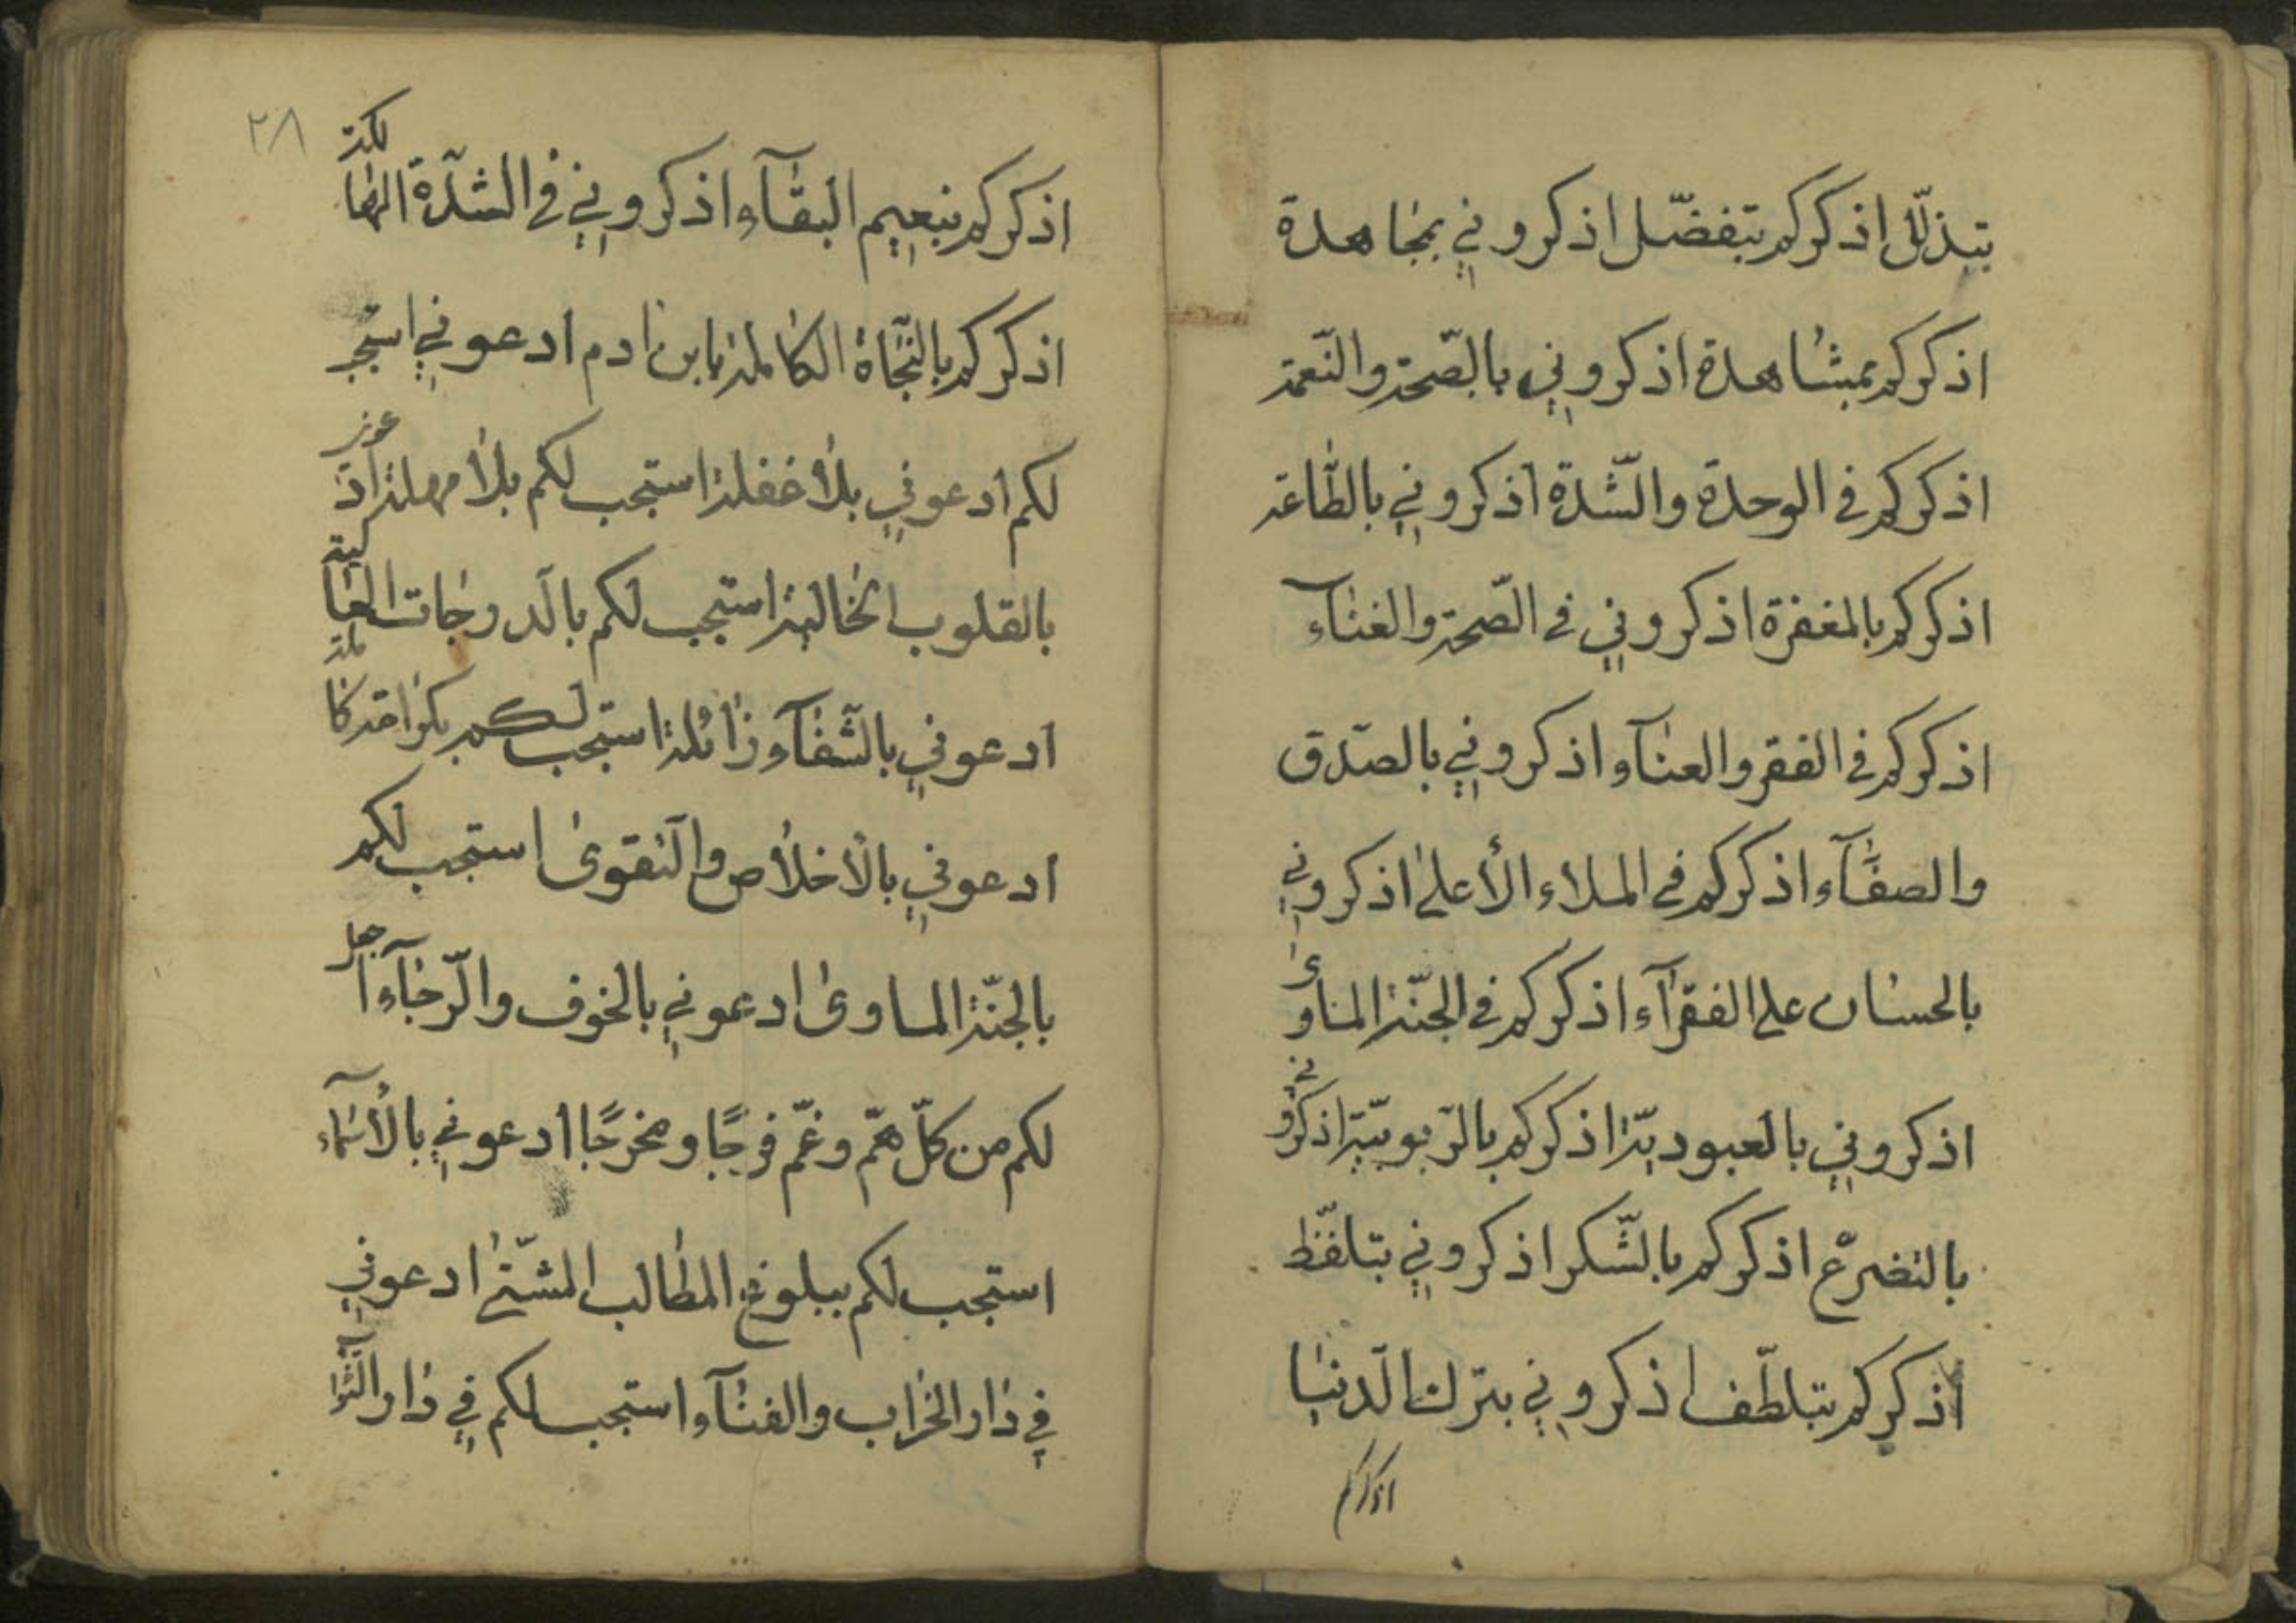 بتذلّل اذكركم بتفضّل اذكروني بمجاهدة
اذكركم بمشاهدة اذكروني بالصّحة والنّعمة
اذكركم في الوحدة والشّدة اذكروني بالطّاعة
اذكركم بالمغفرة اذكروني في الصّحة والغنآء
اذكركم في الفقر والعنآء اذكروني بالصّدق
والصفآء اذكركم في الملاء الأعلى اذكروني
بالحسنان على الفقرآء اذكركم في الجنّة المناوى
اذكروني بالعبوديّة اذكركم بالرّبوبيّة اذكروني
بالتضرّع اذكركم بالشّكر اذكروني بتلفّظ
اذكركم بتلطّف اذكروني بترك الدّنيا
اذكركم
٢٨
اذكركم بنعيم البقآء اذكروني في الشّدة الهالكة
اذكركم بالنّجاة الكاملة يا بن ادم ادعوني استجب
لكم ادعوني بلا غفلة استجب لكم بلا مهلة ادعوني
بالقلوب الخالية استجب لكم بالدّرجات العالية
ادعوني بالشّفآه زائلة استجب لكم بكرامة كاملة
ادعوني بالأخلاص والتّقوى استجب لكم
بالجنّة الماوى ادعوني بالخوف والرّجآء اجعل
لكم من كلّ همّ وغمّ فرجًا ومخرجًا ادعوني بالأسمآء
استجب لكم ببلوغ المطالب المشتى ادعوني
في دار الخراب والفنآء استجب لكم في دار الثّواب